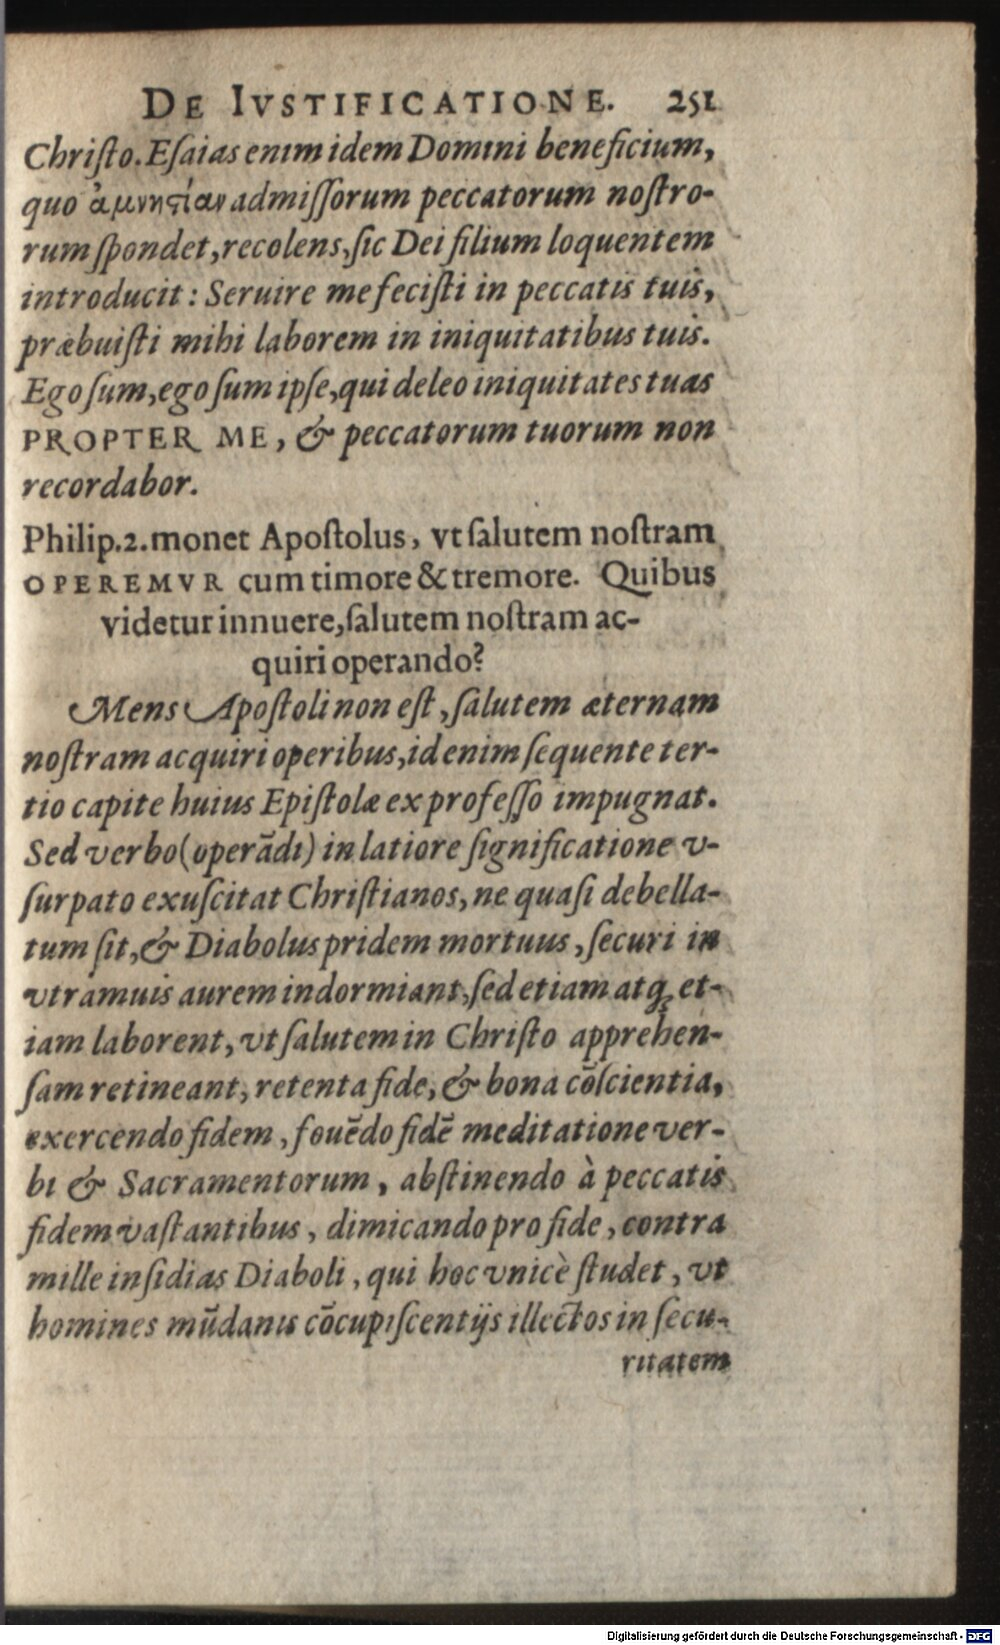 DE IVSTIFICATIONE. 251
Chriſto. Eſaias enim idem Domini beneficium,
quo ἀμνηϛίαν admiſſorum peccatorum noſtro-
rum ſpondet, recolens, ſic Dei filium loquentem
introducit: Seruire me feciſti in peccatis tuis,
præbuiſti mihi laborem in iniquitatibus tuis.
Ego ſum, ego ſum ipſe, qui deleo iniquitates tuas
PROPTER ME, & peccatorum tuorum non
recordabor.
Philip. 2. monet Apoſtolus, vt ſalutem noſtram
OPEREMVR cum timore & tremore. Quibus
videtur innuere, ſalutem noſtram ac-
quiri operando?
Mens Apoſtoli non eſt, ſalutem æternam
noſtram acquiri operibus, id enim ſequente ter-
tio capite huius Epiſtolæ ex profeſſo impugnat.
Sed verbo (operādi) in latiore ſignificatione v-
ſurpato exuſcitat Chriſtianos, ne quaſi debella-
tum ſit, & Diabolus pridem mortuus, ſecuri in
vtramuis aurem indormiant, ſed etiam atq; et-
iam laborent, vt ſalutem in Chriſto apprehen-
ſam retineant, retenta fide, & bona cōſcientia,
exercendo fidem, fouēdo fidē meditatione ver-
bi & Sacramentorum, abſtinendo à peccatis
fidem vaſtantibus, dimicando pro fide, contra
mille inſidias Diaboli, qui hoc vnicè ſtudet, vt
homines mūdanis cōcupiſcentijs illectos in ſecu-
ritatem
Digitalisierung gefördert durch die Deutsche Forschungsgemeinschaft - DFG